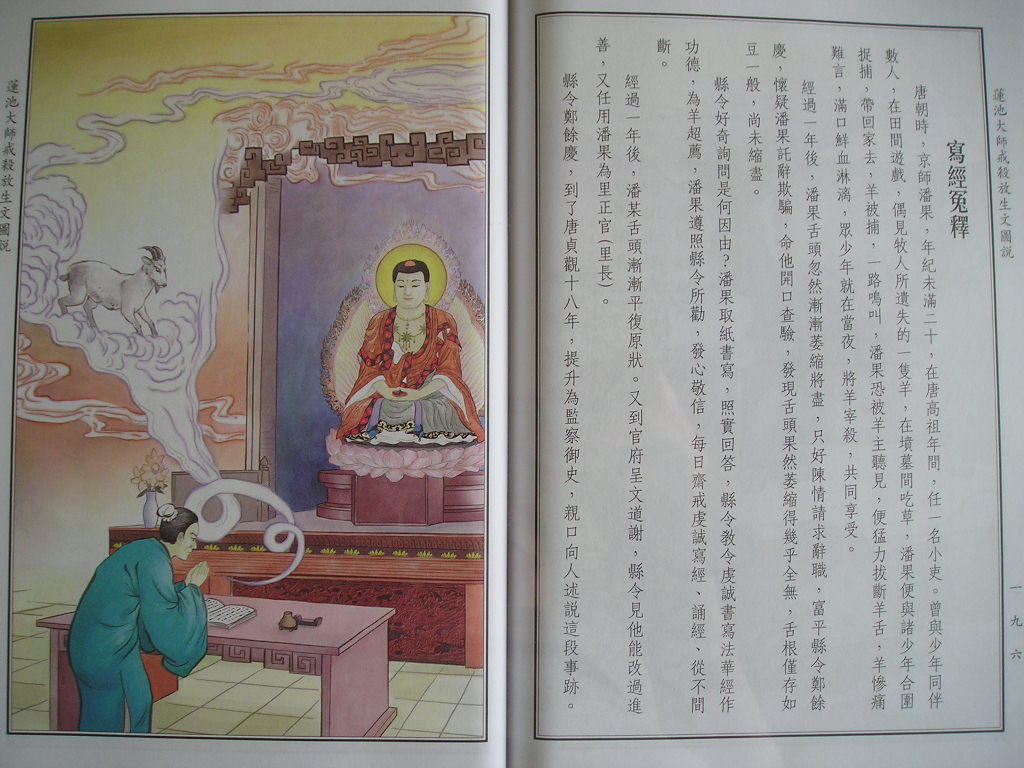 蓮池大師戒殺放生文圖說
一九六
寫經冤釋
唐朝時，京師潘果，年紀未滿二十，在唐高祖年間，任一名小吏。曾與少年同伴
數人，在田間遊戲，偶見牧人所遺失的一隻羊，在墳墓間吃草，潘果便與諸少年合圍
捉捕，帶回家去，羊被捕，一路鳴叫，潘果恐被羊主聽見，便猛力拔斷羊舌，羊慘痛
難言，滿口鮮血淋漓，眾少年就在當夜，將羊宰殺，共同享受。
經過一年後，潘果舌頭忽然漸漸萎縮將盡，只好陳情請求辭職，富平縣令鄭餘
慶，懷疑潘果託辭欺騙，命他開口查驗，發現舌頭果然萎縮得幾乎全無，舌根僅存如
豆一般，尚未縮盡。
縣令好奇詢問是何因由？潘果取紙書寫，照實回答，縣令教令虔誠書寫法華經作
功德，為羊超薦，潘果遵照縣令所勸，發心敬信，每日齋戒虔誠寫經、誦經、從不間
斷。
經過一年後，潘某舌頭漸漸平復原狀。又到官府呈文道謝，縣令見他能改過進
善，又任用潘果為里正官（里長）。
縣令鄭餘慶，到了唐貞觀十八年，提升為監察御史，親口向人述說這段事跡。
蓮池大師戒殺放生文圖說